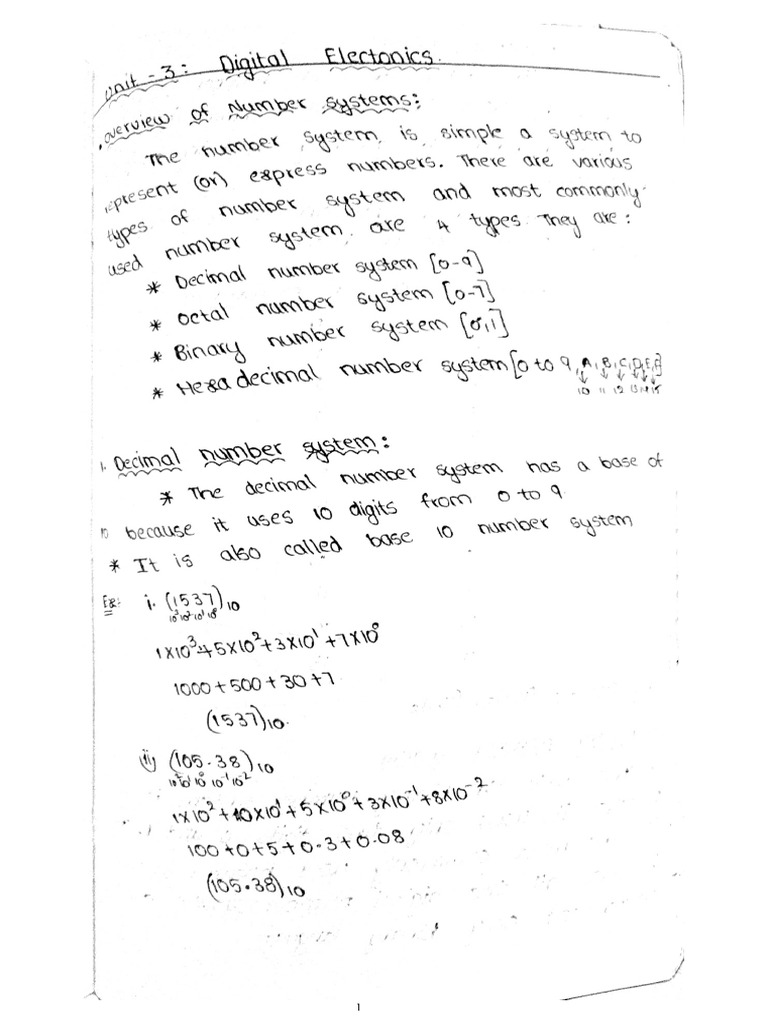 Unit - 3: Digital Electonics.
overview of Number systems:
The number system is simple a system to
represent (or) express numbers. There are various
types of number system and most commonly
used number system are 4 types. They are:
* Decimal number system [0-9]
* Octal number system [0-7]
* Binary number system [0,1]
* Hexa decimal number system [0 to 9, A, B, C, D, E, F]
10 11 12 13 14 15
1. Decimal number system:
* The decimal number system has a base of
10 because it uses 10 digits from 0 to 9
* It is also called base 10 number system
Ex: i. (1537)10
10³10²10¹10⁰
1×10³+5×10²+3×10¹+7×10⁰
1000+500+30+7
(1537)10
ii) (105.38)10
10²10¹10⁰ 10⁻¹10⁻²
1×10²+10×10¹+5×10⁰+3×10⁻¹+8×10⁻²
100+0+5+0.3+0.08
(105.38)10
1